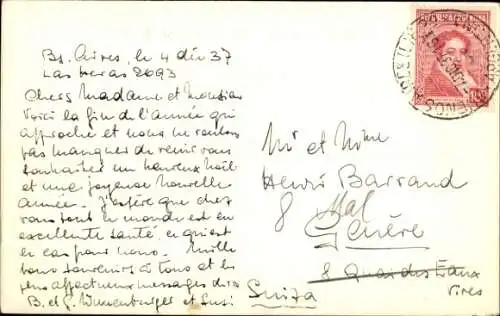 Bs. Aires, le 4 déc 37
Las Heras 2093
Chers Madame et Monsieur
Voici la fin de l'année qui
approche et nous ne voulons
pas manquer de venir vous
souhaiter un heureux Noël
et une joyeuse nouvelle
année. J'espère que chez
vous tout le monde est en
excellente santé, ce qui est
le cas pour nous. Mille
bons souvenirs à tous et les
plus affectueux messages de vos
B. et G. Wunenburger et Susi
Mr et Mme
Henri Barrand
8
Genève
8 Quai des Eaux
Vives
Suiza